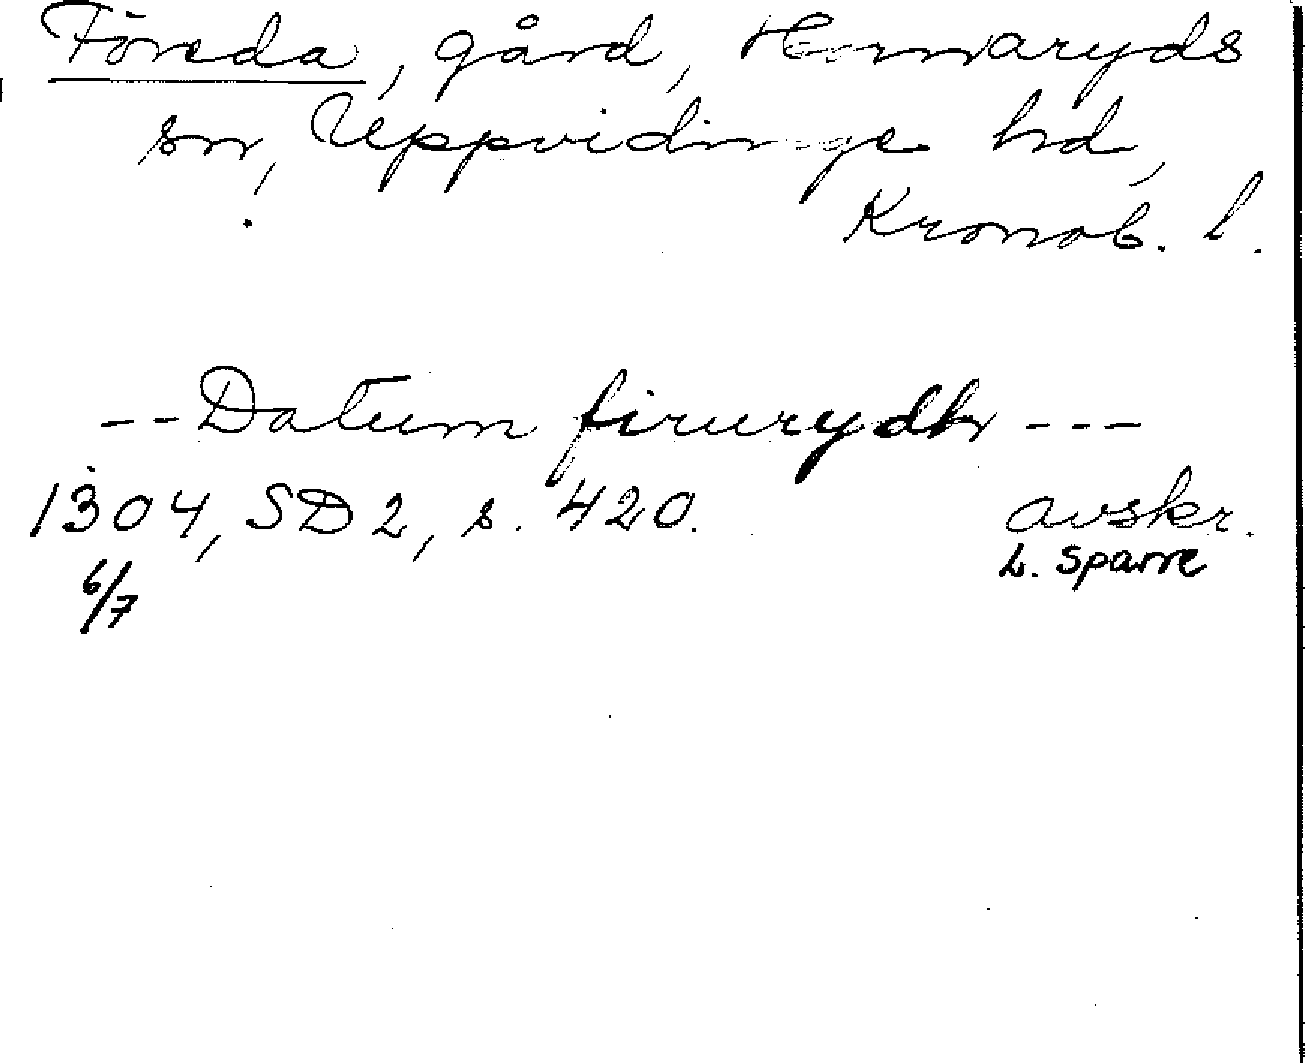 Föreda, gård, Hemmaryds
sn, Uppvidinge hd,
Kronob. l.
--Datum firurydh ---
1304, SD 2, s. 420. avskr.
6/7 L. Sparre